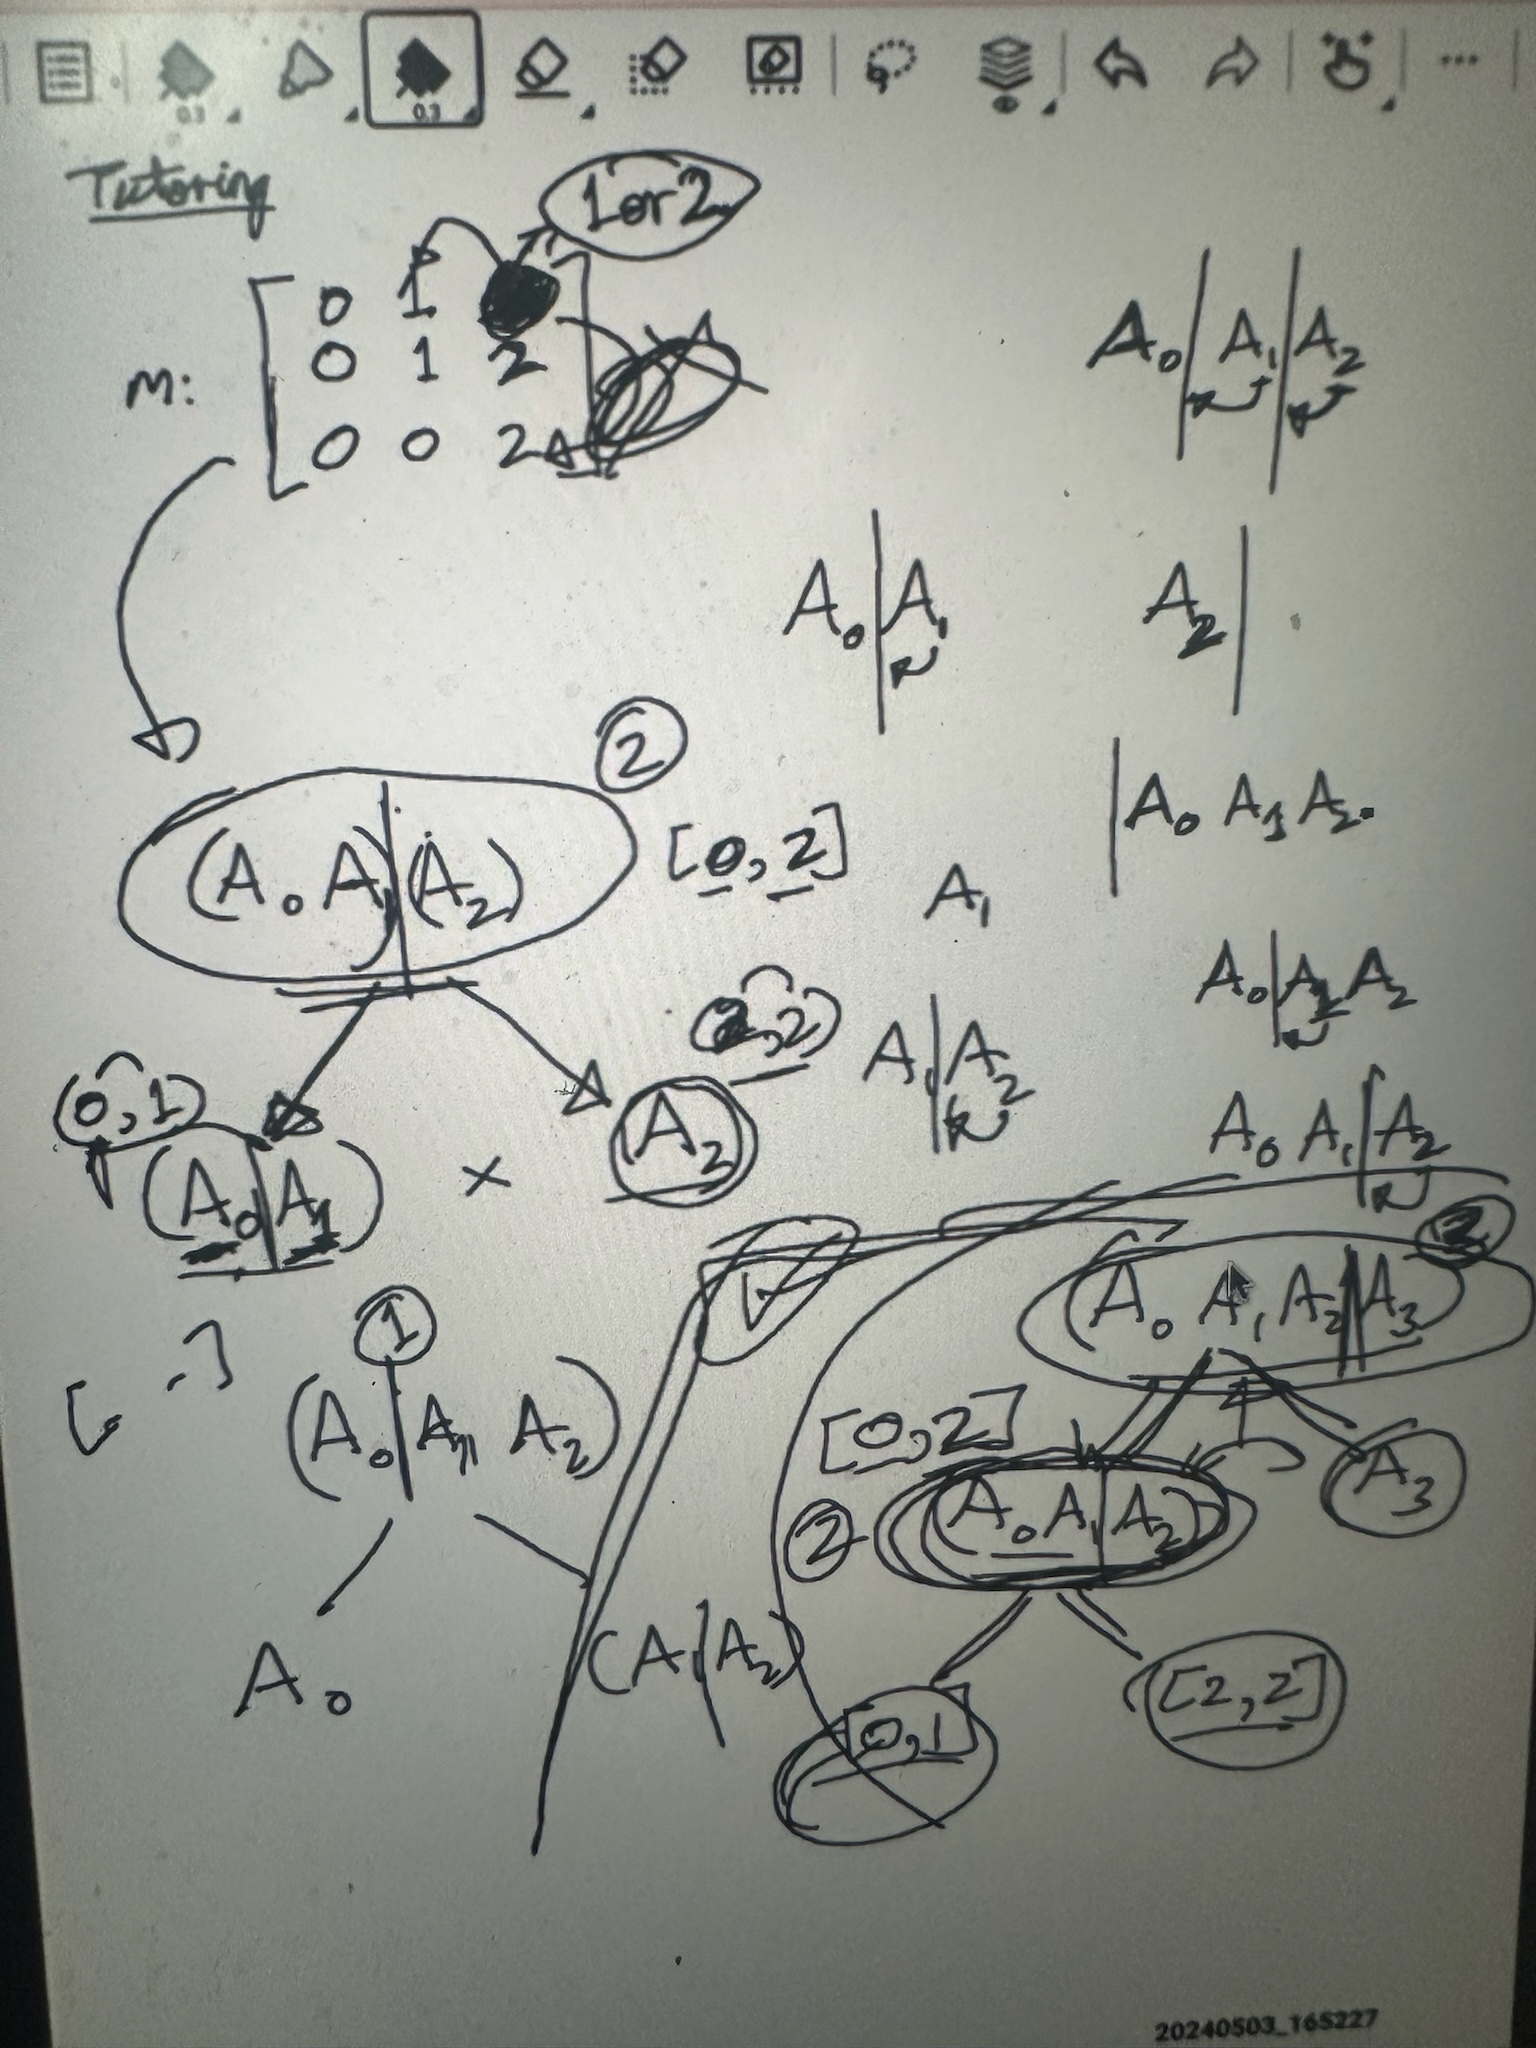 0.3 0.3
Tutoring
1 or 2
0 1
m: 0 1 2
0 0 2
A0 | A1 | A2
A0 | A1
A2 |
2
(A0 A1) | (A2)
[0, 2]
| A0 A1 A2
A1
A0 | A1 A2
, 2)
A1 | A2
(0, 1)
A2
A0 A1 | A2
(A0 | A1)
×
1
(A0 A1 A2 | A3)
(A0 | A1 A2)
[0, 2]
A3
2
(A0 A1 | A2)
A0
(A1 | A2)
[0, 1]
[2, 2]
20240503_165227